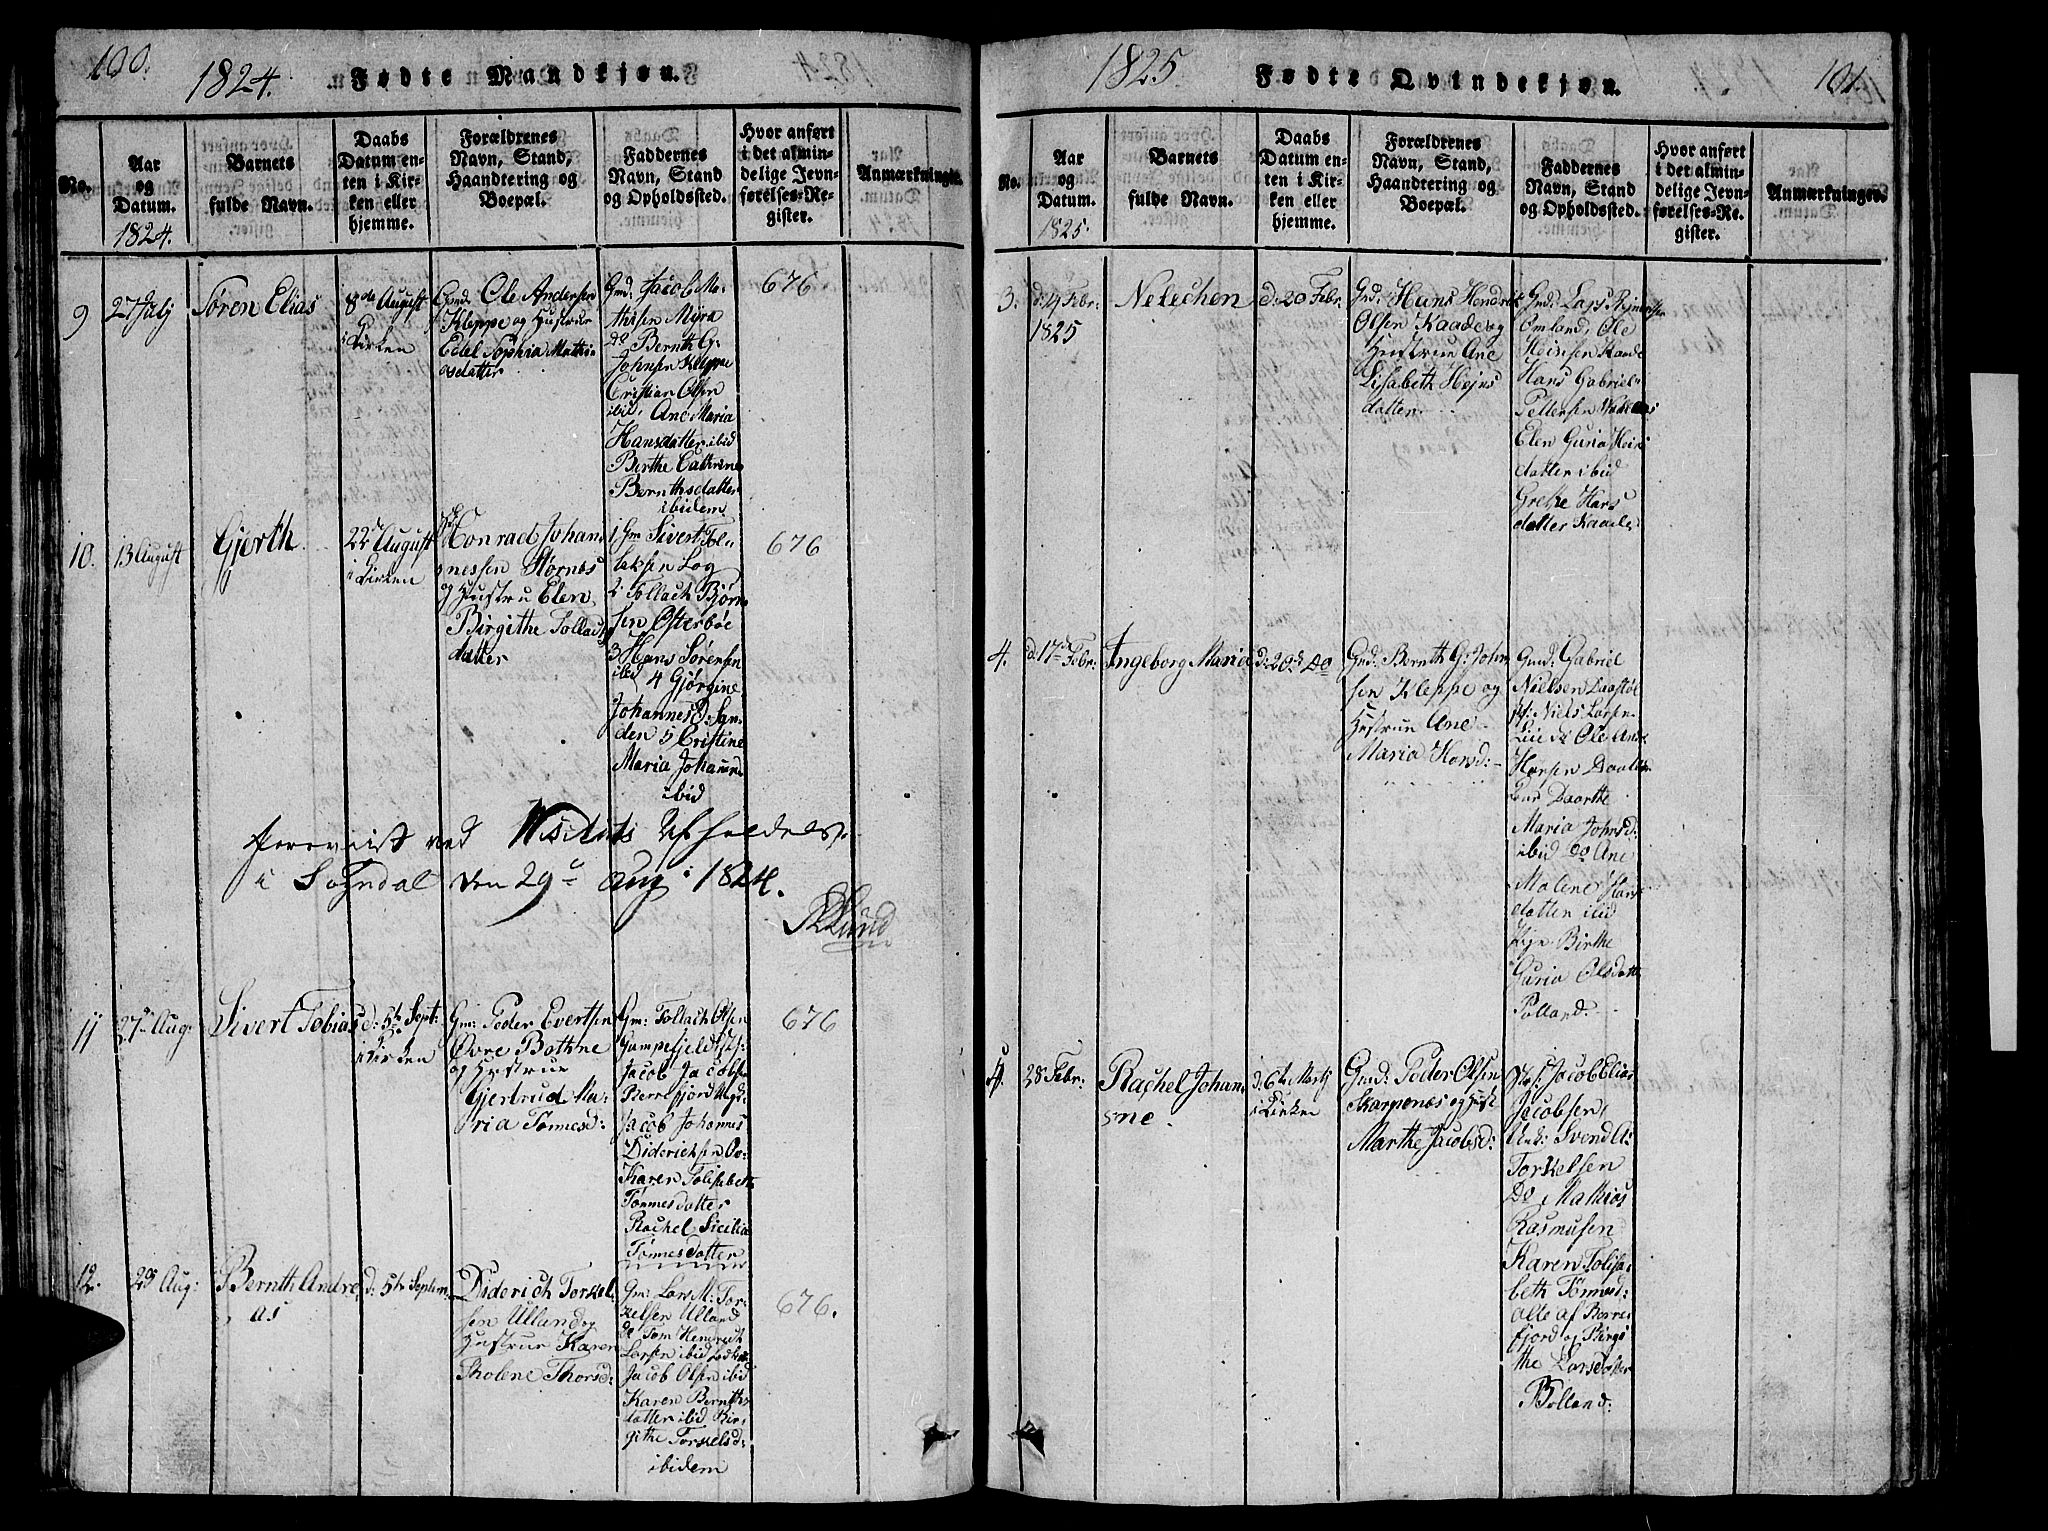 100.
1824. Fødte Mandkjøn.
No.
Aar
og
Datum.
1824.
Barnets
fulde Navn.
Daabs
Datum en-
ten i Kir-
ken eller
hjemme.
Forældrenes
Navn, Stand,
Haandtering og
Boepæl.
Faddernes
Navn, Stand
og Opholdssted.
Hvor anført
i det almin-
delige Jevn-
førelses-Re-
gister.
Anmærkninger.
9
27 July
Søren Elias
8de August
i Kirken
Gmd. Ole Andersen
Kleppe og Hustrue
Edel Sophia Mathi-
asdatter
Gmd. Jacob Ma-
thisen Myra
do Bernth G.
Johnsen Kleppe
Cristian Olsen
ibid, Ane Maria
Hansdatter ibid
Berthe Cathrine
Bernthsdatter
ibidem
676
10.
13 August
Gjerth
22de August
i Kirken
Conrad Johan-
nessen Stornæs
og Hustru Elen
Birgithe Tollachs
datter
1 Gm Sivert Tol-
laksen Log
2 Tollach Bjørn
sen Østerbøe
3 Hans Sørensen
ibid 4 Gjørgine
Johannesd: San-
den 5 Cristine
Maria Johannd
ibid
676
foreviist ved Visitats Afholdelse
i Sogndal den 29de Aug: 1824.
Lund
11
27de Aug:
Sivert Tobias
d: 5te Sept:
i Kirken
Gm: Peder Evertsen
Øvre Bothne
og Hustrue
Gjertrud Ma-
ria Tønnesd:
Gm: Tollach Olsen
Gampefjeld
Jacob Jacobsen
Berrefjord Ungd
Jacob Johannes
Diderichsen
Karen Tolisabeth
Tønnesdatter
Rachel Sicilia
Tønnesdatter
676
12.
29 Aug:
Bernth Andre
as
d: 5te Septem
Diderich Torkel-
sen Ulland og
Hustrue Karen
Tholene Thorsd:
Gm: Lars M: Tor-
kelsen Ulland
do Tom Hendrich
Larsen ibid
Jacob Olsen ibid
Karen Bernths
datter ibid Bir-
githe Torkelsd:
ibidem
676.
1825 Fødte Qvindekjøn.
101.
No.
Aar
og
Datum.
1825.
Barnets
fulde Navn.
Daabs
Datum en-
ten i Kir-
ken eller
hjemme.
Forældrenes
Navn, Stand,
Haandtering og
Boepæl.
Faddernes
Navn, Stand
og Opholdssted.
Hvor anført
i det almin-
delige Jevn-
førelses-Re-
gister.
Anmærkninger.
3.
d: 14 Febr:
1825
Nelechen
d: 20 Febr:
Gmd: Hans Hendrik
Olsen Kaade og
Hustrue Ane
Lisabeth Hejns
datter
Gmd: Lars
Omland, Ole
Heinsen Kaade
Hans Gabriel
Pettersen
Elen Guria Hein
datter ibid
Grethe Hans
datter Kaade
4.
d: 17de Febr:
Ingeborg Maria
d: 20de Do
Gmd: Bernth G: John
sen Kleppe og
Hustrue Ane
Maria Hansd:
Gmd: Gabriel
Nielsen Daastøl
pf: Niels Larsen
Ole And
Hansen
Daarthe
Maria Johnsd:
ibid Do Ane
Malene Hans
datter ibid
Pign Birthe
Guria Olsdatt
Polland.
5.
28 Febr:
Rachel Johan
ne.
d: 6te Martz
i Kirken
Gmd: Peder Olsen
Skarpenæs og Hust
Marthe Jacobsd:
Jacob Elias
Jacobsen,
Unk: Svend A:
Torkelsen
Do Mathias
Rasmusen
Karen Tolisa-
beth Tønnesd:
alle af Berre-
fjord og Birgi-
the Larsdatter
Bolland.